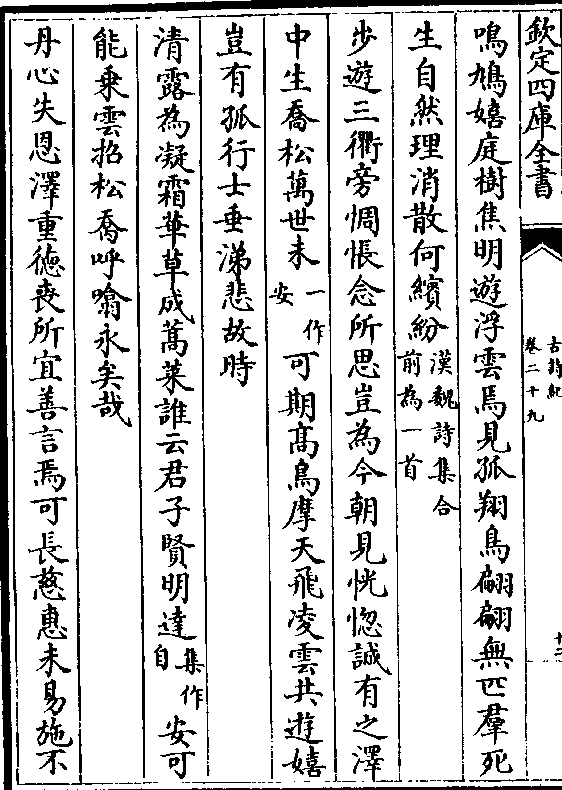 欽定四庫全書
古詩紀
卷二十九
十二
鳴鳩嬉庭樹焦明遊浮雲焉見孤翔鳥翩翩無匹羣死
生自然理消散何繽紛漢魏詩集合前為一首
步遊三衢旁惆悵念所思豈為今朝見恍惚誠有之澤
中生喬松萬世未一作安可期髙鳥摩天飛凌雲共遊嬉
豈有孤行士垂涕悲故時
清露為凝霜華草成蒿萊誰云君子賢明達集作自安可
能乗雲招松喬呼噏永矣哉
丹心失恩澤重徳喪所宜善言焉可長慈惠未易施不